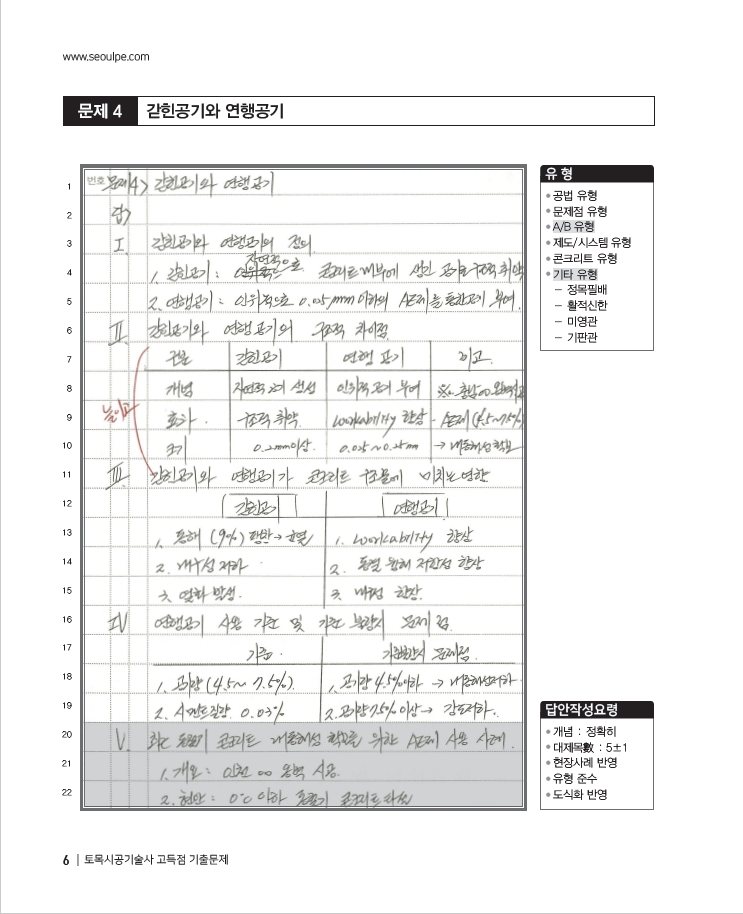 www.seoulpe.com
문제 4 갇힌공기와 연행공기
번호 문제4> 갇힌공기와 연행공기
답>
I. 갇힌공기와 연행공기의 정의
1. 갇힌공기 : 자연적으로 콘크리트 내부에 생긴 공기로 구조적 취약
2. 연행공기 : 인위적으로 0.025mm이하의 AE제를 통한 공기 부여.
II. 갇힌공기와 연행공기의 구조적 차이점
구분 갇힌공기 연행 공기 비고
개념 자연적 공기 생성 인위적 공기 부여
효과 구조적 취약 workability 향상 - AE제 (4.5~7.5%)
크기 0.2mm이상. 0.025~0.25mm → 내동해성 확보
III. 갇힌공기와 연행공기가 콘크리트 구조물에 미치는 영향
갇힌공기 연행공기
1. 동해 (9%) 팽창→균열 1. workability 향상
2. 내구성 저하 2. 동결 융해 저항성 향상
3. 열화 발생. 3. 향상.
IV 연행공기 사용 기준 및 기준 불량시 문제점.
기준 기준불량시 문제점.
1. 공기량 (4.5~7.5%). 1. 공기량 4.5%이하 → 내동해성저하
2. 시멘트질량 0.03% 2. 공기량 7.5%이상→ 강도저하.
V. 동절기 콘크리트 내동해성 확보를 위한 AE제 사용 사례.
1. 개요 : 인천 ∞ 옹벽 시공.
2. 현안 : 0℃ 이하 동절기 콘크리트 타설
유 형
• 공법 유형
• 문제점 유형
• A/B 유형
• 제도/시스템 유형
• 콘크리트 유형
• 기타 유형
– 정목필배
– 활적신한
– 미영관
– 기판관
답안작성요령
• 개념 : 정확히
• 대제목數 : 5±1
• 현장사례 반영
• 유형 준수
• 도식화 반영
1
2
3
4
5
6
7
8
9
10
11
12
13
14
15
16
17
18
19
20
21
22
6 | 토목시공기술사 고득점 기출문제